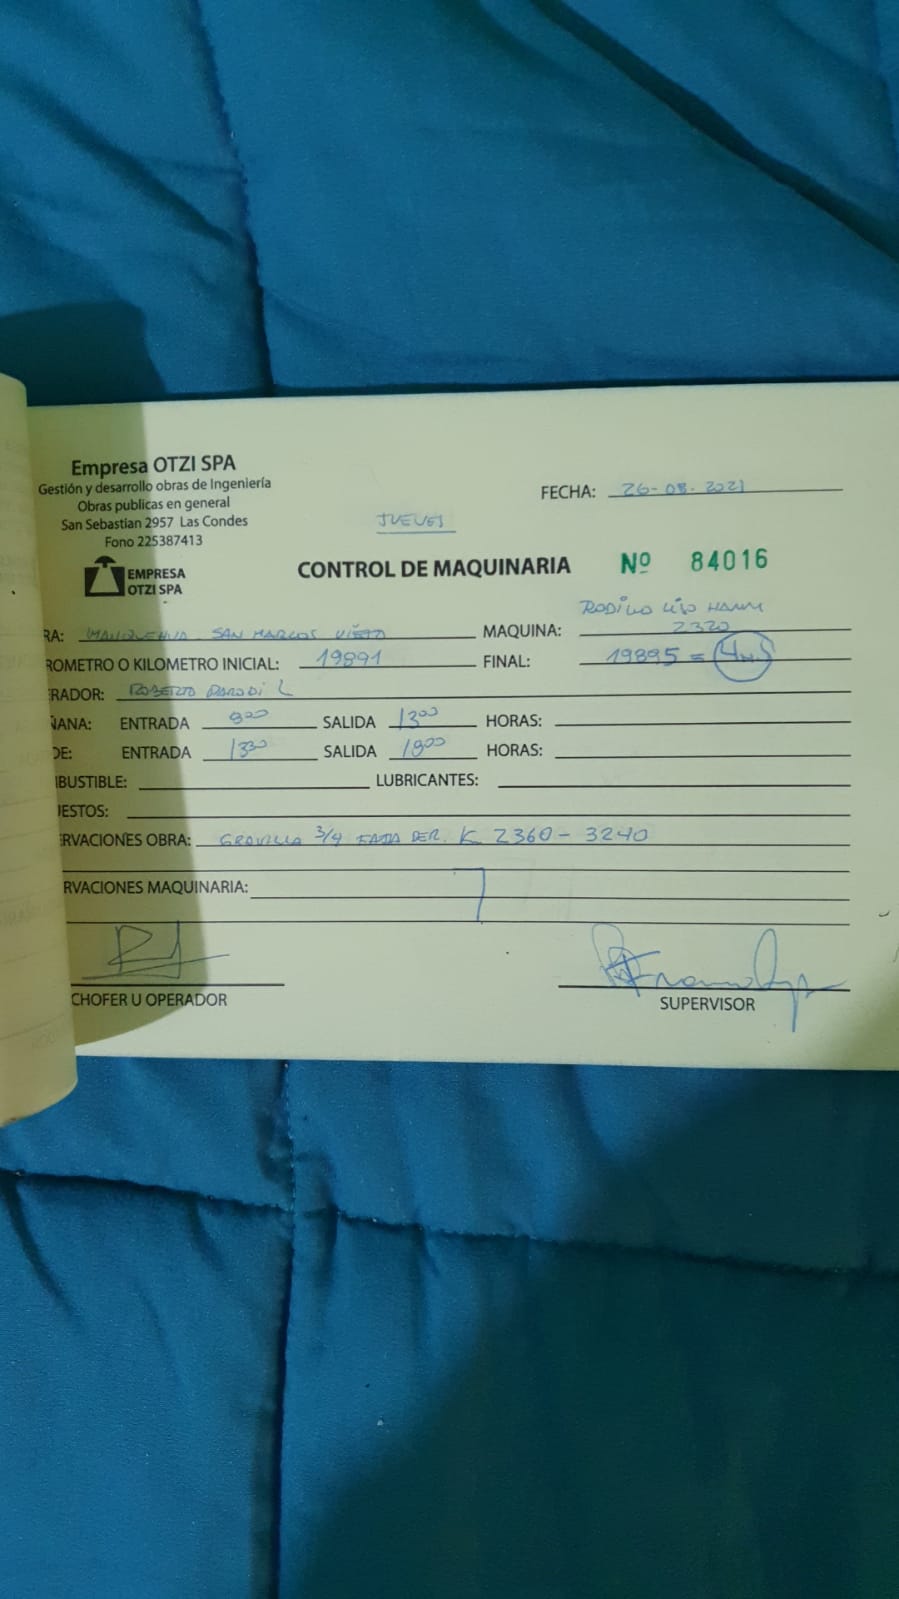 Empresa OTZI SPA
Gestión y desarrollo obras de Ingeniería
Obras publicas en general
San Sebastian 2957 Las Condes
Fono 225387413
EMPRESA
OTZI SPA
FECHA: 26-08-2021
JUEVES
CONTROL DE MAQUINARIA Nº 84016
RODILLO LISO HAMM
RA: MANQUEHUA. SAN MARCOS VIEJO MAQUINA: 2320
ROMETRO O KILOMETRO INICIAL: 19891 FINAL: 19895 = 4HS
RADOR: ROBERTO PARODI L
ÑANA: ENTRADA 800 SALIDA 1300 HORAS:
DE: ENTRADA 1330 SALIDA 1800 HORAS:
BUSTIBLE: LUBRICANTES:
UESTOS:
RVACIONES OBRA: GRAVILLA 3/4 FAJA DER. K 2360 - 3240
RVACIONES MAQUINARIA:
CHOFER U OPERADOR
SUPERVISOR